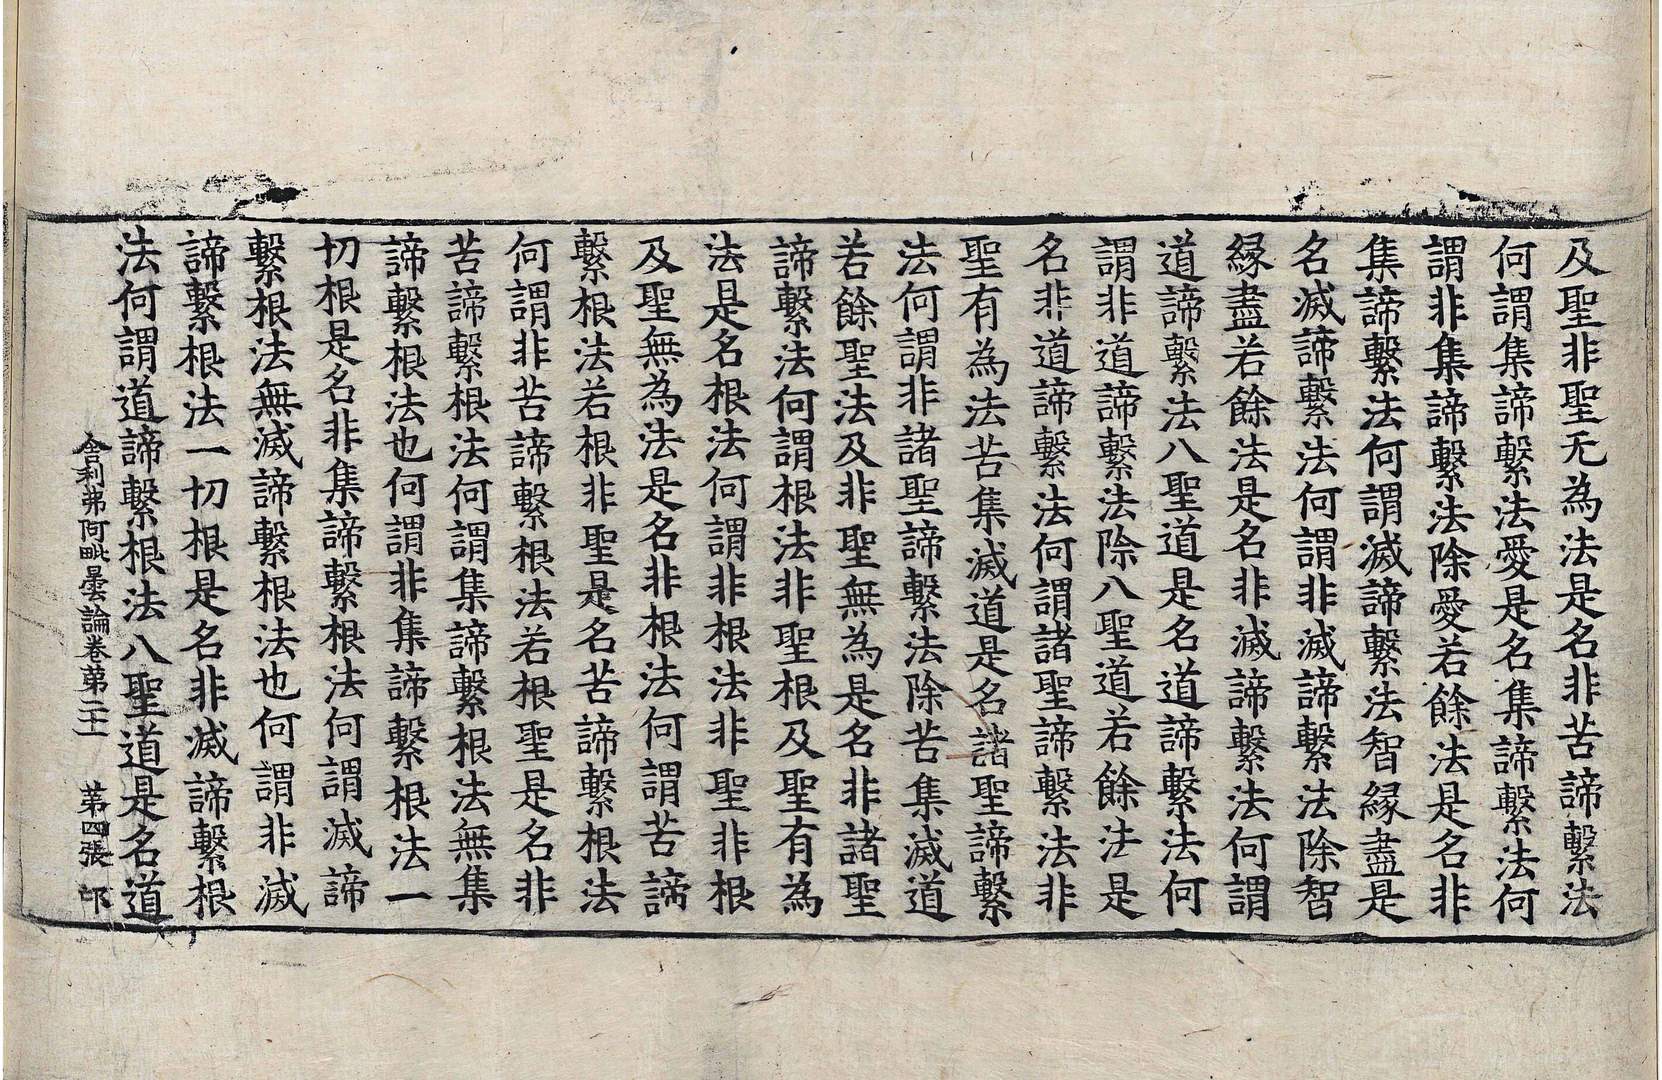 及聖非聖无為法是名非苦諦繫法
何謂集諦繫法愛是名集諦繫法何
謂非集諦繫法除愛若餘法是名非
集諦繫法何謂滅諦繫法智縁盡是
名滅諦繫法何謂非滅諦繫法除智
縁盡若餘法是名非滅諦繫法何謂
道諦繫法八聖道是名道諦繫法何
謂非道諦繫法除八聖道若餘法是
名非道諦繫法何謂諸聖諦繫法非
聖有為法苦集滅道是名諸聖諦繫
法何謂非諸聖諦繫法除苦集滅道
若餘聖法及非聖無為是名非諸聖
諦繫法何謂根法非聖根及聖有為
法是名根法何謂非根法非聖非根
及聖無為法是名非根法何謂苦諦
繫根法若根非聖是名苦諦繫根法
何謂非苦諦繫根法若根聖是名非
苦諦繫根法何謂集諦繫根法無集
諦繫根法也何謂非集諦繫根法一
切根是名非集諦繫根法何謂滅諦
繫根法無滅諦繫根法也何謂非滅
諦繫根法一切根是名非滅諦繫根
法何謂道諦繫根法八聖道是名道
舍利弗阿毗曇論卷第二十 第四張